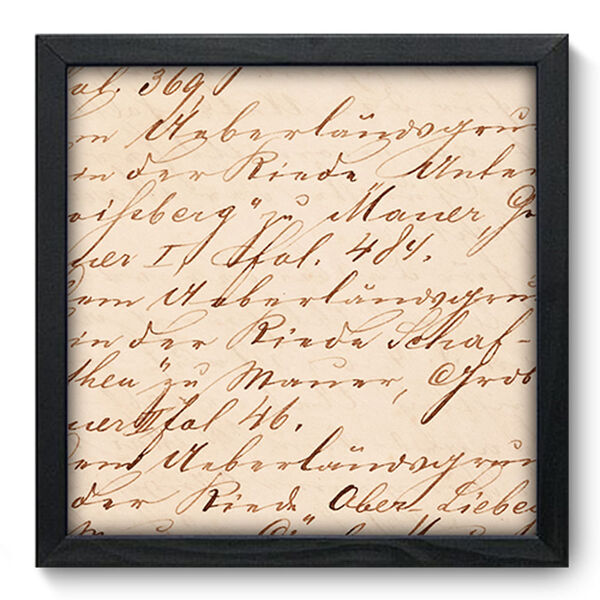 ol. 369,
m Ueberländsgru
in der Riede Unter
oißberg" zu Mauer, G
uer I, fol. 484.
em Ueberländsgru
in der Riede Schaf-
then" zu Mauer, Grob
uer II fol 46.
em Ueberländsgrun
der Riede Ober-Liebe